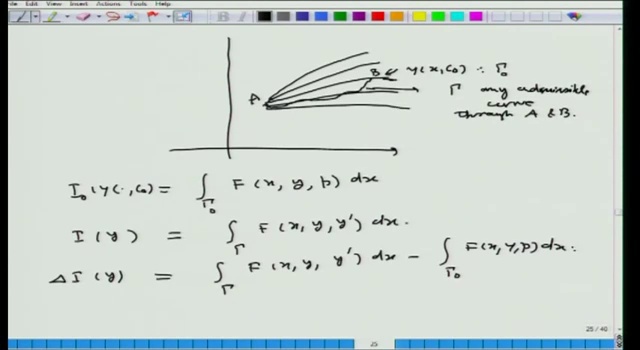 Edit View Insert Actions Tools Help
B y(x, c₀) : Γ₀
A
Γ any admissible
curve
through A & B.
I₀(y(·, c₀) = ∫_Γ₀ F(x, y, p) dx
I(y) = ∫_Γ F(x, y, y') dx.
ΔI(y) = ∫_Γ F(x, y, y') dx − ∫_Γ₀ F(x, y, p) dx.
25 / 40
25